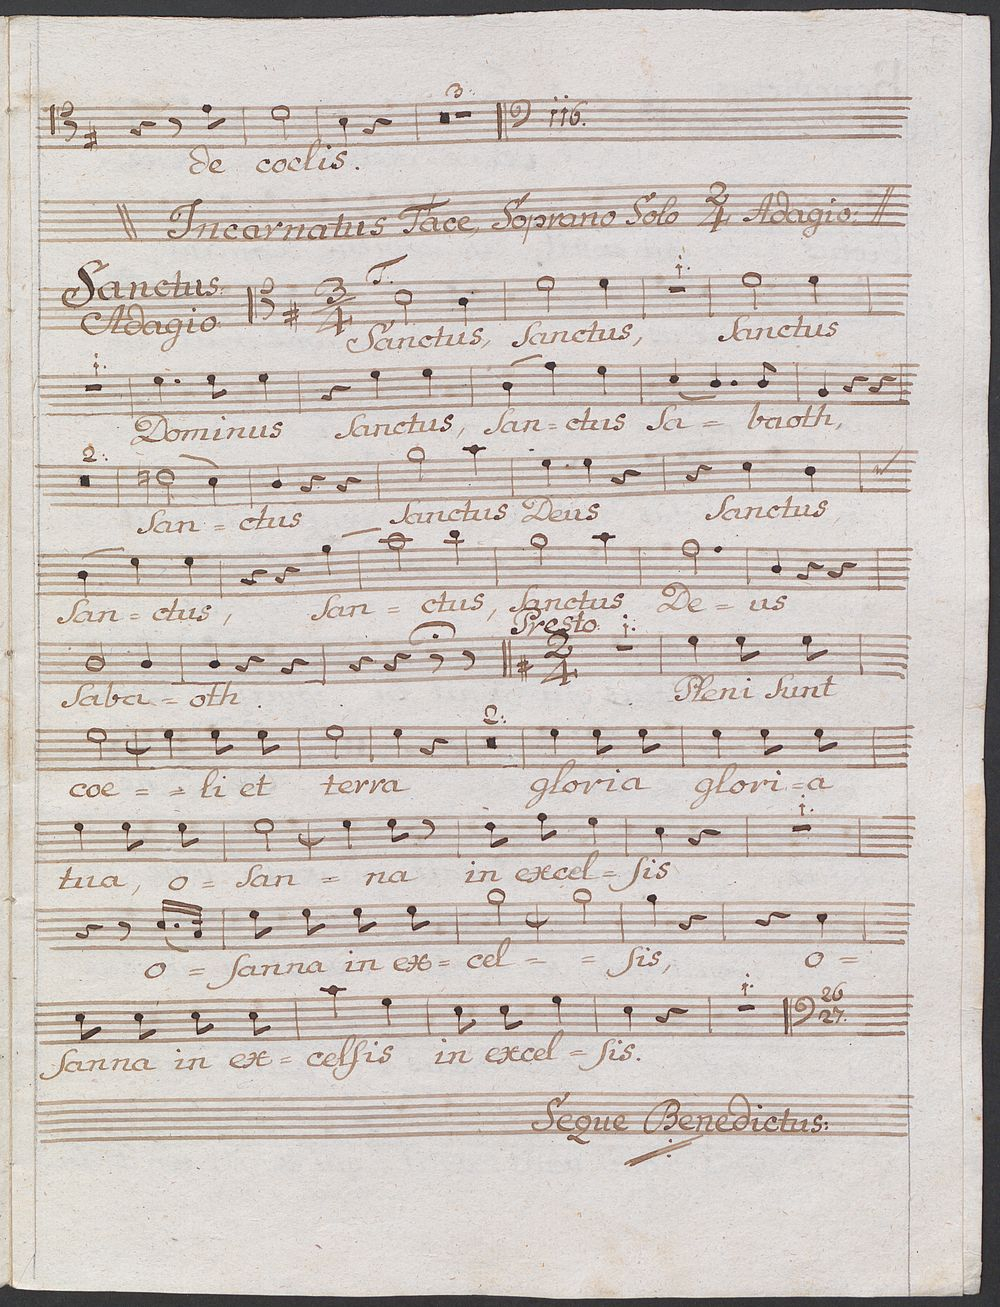 3.
116.
de coelis.
Incarnatus Tace, Soprano Solo 2/4 Adagio:
Sanctus.
Adagio
3/4
T.
1.
Sanctus, Sanctus, Sanctus
1.
Dominus Sanctus, San = ctus Sa = baoth,
2.
San = ctus Sanctus Deus Sanctus,
San = ctus, San = ctus, Sanctus De = us
Presto.
2/4
1.
Saba = oth. Pleni Sunt
2.
coe = = li et terra gloria glori = a
1.
tua, o = San = na in excel = sis
o = Sanna in ex = cel = = sis, o =
1.
26
27.
Sanna in ex = celsis in excel = sis.
Seque Benedictus: